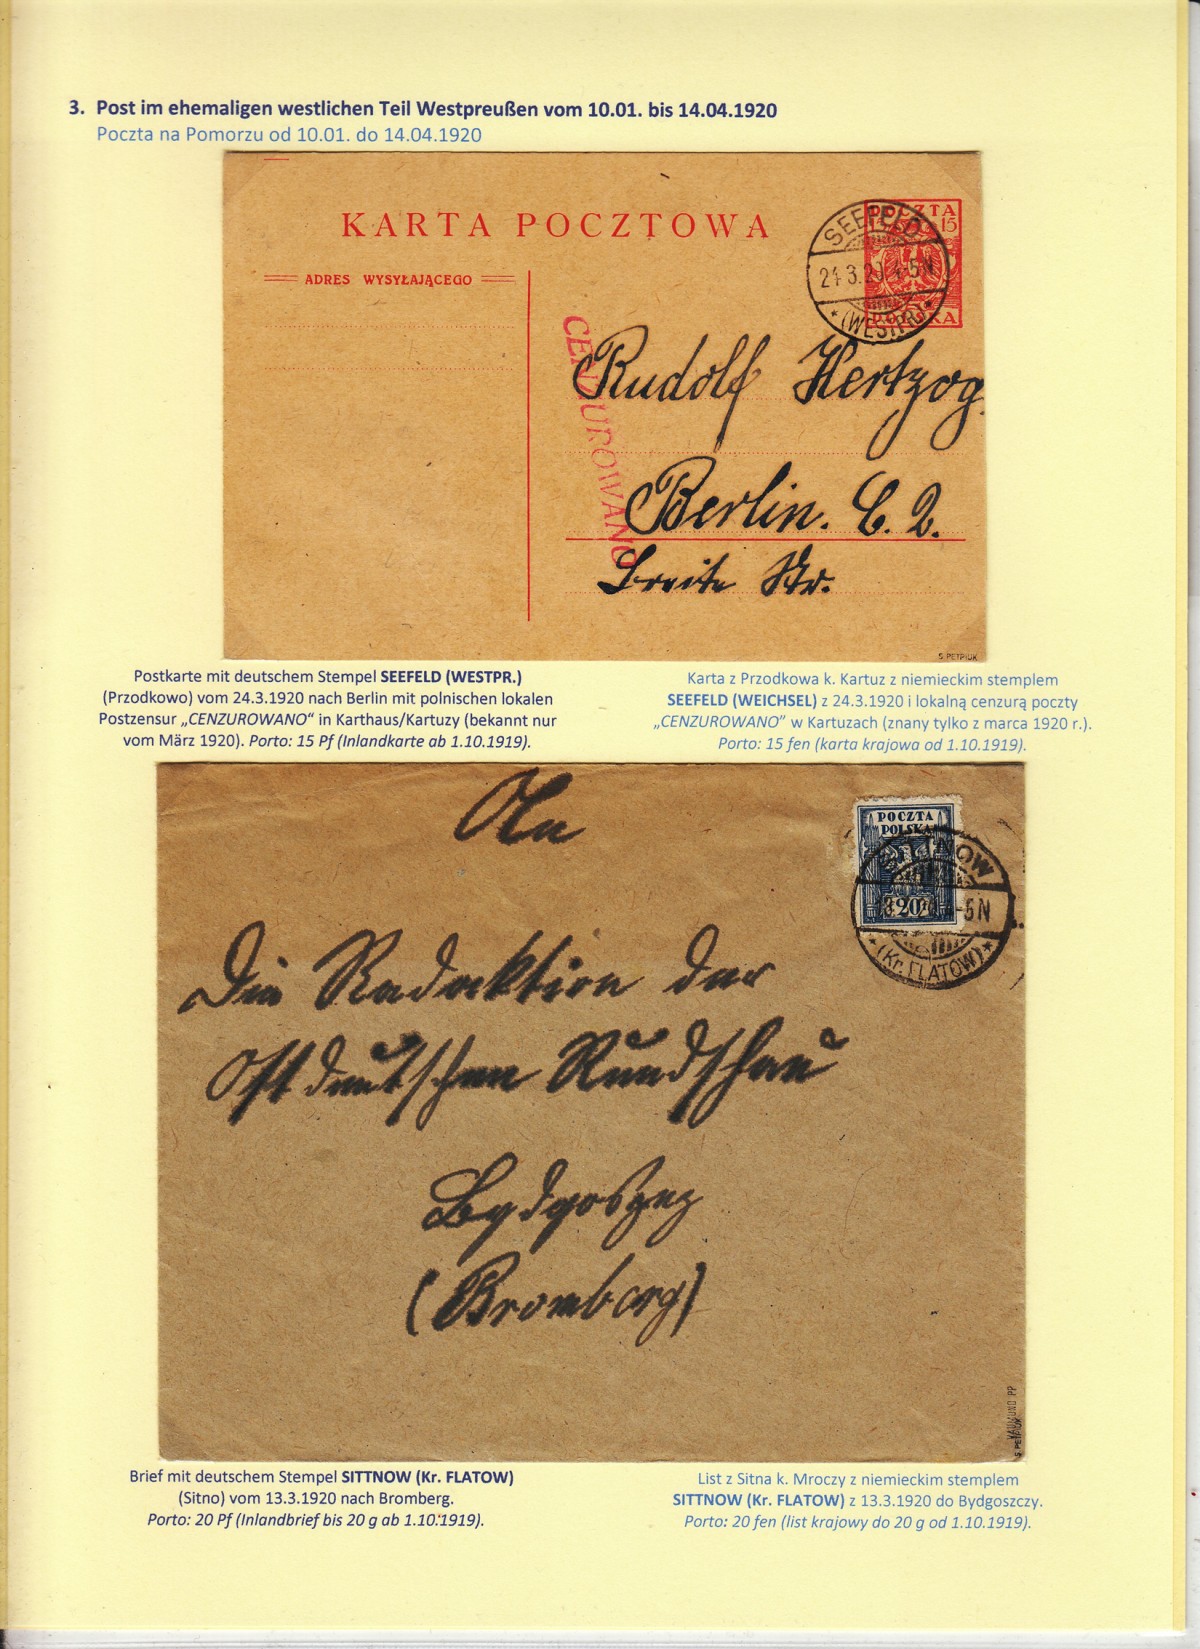 3. Post im ehemaligen westlichen Teil Westpreußen vom 10.01. bis 14.04.1920
Poczta na Pomorzu od 10.01. do 14.04.1920
KARTA POCZTOWA
ADRES WYSYŁAJĄCEGO
POCZTA
15
POLSKA
SEEFELD
24.3.20 4-5N
* (WESTPR.) *
CENZUROWANO
Rudolf Hertzog.
Berlin. C. 2.
Breite Str.
S. PETRIUK
Postkarte mit deutschem Stempel SEEFELD (WESTPR.)
(Przodkowo) vom 24.3.1920 nach Berlin mit polnischen lokalen
Postzensur „CENZUROWANO“ in Karthaus/Kartuzy (bekannt nur
vom März 1920). Porto: 15 Pf (Inlandkarte ab 1.10.1919).
Karta z Przodkowa k. Kartuz z niemieckim stemplem
SEEFELD (WEICHSEL) z 24.3.1920 i lokalną cenzurą poczty
„CENZUROWANO” w Kartuzach (znany tylko z marca 1920 r.).
Porto: 15 fen (karta krajowa od 1.10.1919).
An
POCZTA
POLSKA
20
SITTNOW
-5N
* (Kr. FLATOW) *
Die Redaktion der
Ostdeutschen Rundschau
Bydgoszcz
(Bromberg)
S. PETRIUK
Brief mit deutschem Stempel SITTNOW (Kr. FLATOW)
(Sitno) vom 13.3.1920 nach Bromberg.
Porto: 20 Pf (Inlandbrief bis 20 g ab 1.10.1919).
List z Sitna k. Mroczy z niemieckim stemplem
SITTNOW (Kr. FLATOW) z 13.3.1920 do Bydgoszczy.
Porto: 20 fen (list krajowy do 20 g od 1.10.1919).